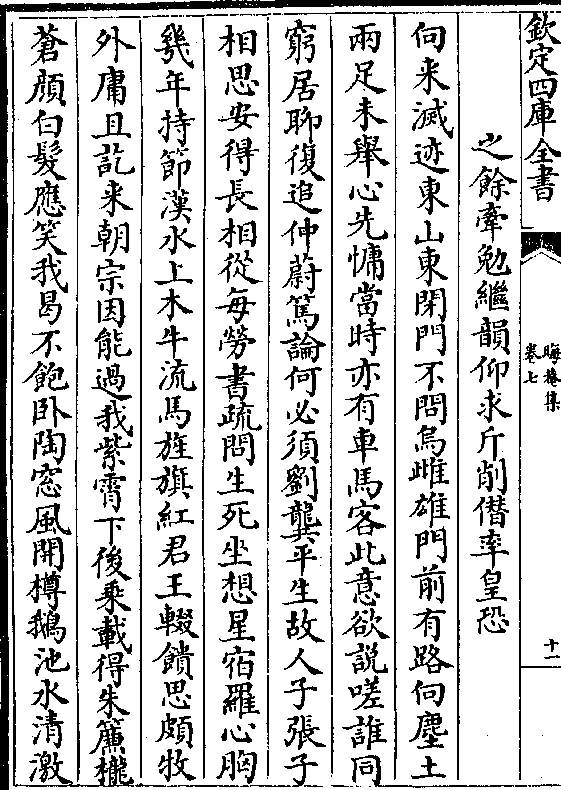 欽定四庫全書
晦菴集
卷七
十一
之餘牽勉繼韻仰求斤削僭率皇恐
向来滅迹東山東閉門不問烏雌雄門前有路向塵土
兩足未舉心先慵當時亦有車馬客此意欲說嗟誰同
窮居聊復追仲蔚篤論何必須劉龔平生故人子張子
相思安得長相從每勞書疏問生死坐想星宿羅心胸
幾年持節漢水上木牛流馬旌旗紅君王輟饋思頗牧
外庸且訖来朝宗因能過我紫霄下後乘載得朱簾櫳
蒼顔白髮應笑我曷不飽卧陶窓風開樽鵝池水清激